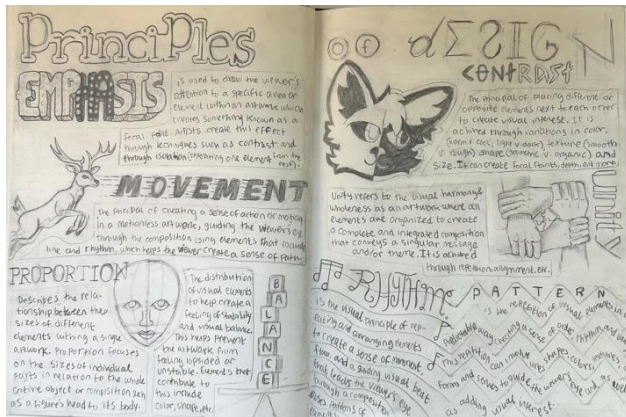 Principles
EMPHASIS
is used to draw the viewer's
attention to a specific area or
element within an artwork which
creates something known as a
focal point. Artists create this effect
through techniques such as contrast and
through isolation (separating one element from the
rest).
MOVEMENT
The principal of creating a sense of action or motion
in a motionless artwork, guiding the viewers eye
through the composition using elements that include
line and rhythm, which helps the viewer create a sense of
PROPORTION
Describes the rela-
tionship between the
sizes of different
elements within a single
artwork. Proportion focuses
on the sizes of individual
parts in relation to the whole
entire object or composition such
as a figure's head to its body.
The distribution
of visual elements
to help create a
feeling of stability
and visual balance.
This helps prevent
the artwork from
feeling lopsided or
unstable. Elements that
contribute to
this include
color, shape, etc.
BALANCE
Of DESIGN
CONTRAST
The principal of placing different or
opposite elements next to each other
to create visual interest. It is
achived through variations in color,
(warm v. cool, light v. dark) texture (smooth
v. rough) shape (geometric v. organic) and
size. It can create focal points, depth, and more.
Unity refers to the visual harmony &
wholeness as an artwork where all
elements are organized to create
a complete and integrated composition
that conveys a singular message
and/or theme. It is achived
through repetition, alignment, etc.
UNITY
RHYTHM
is the visual principle of rep-
eating and arranging elements
to create a sense of movement,
flow, and a guiding visual beat
that leads the viewers eye
through a composition
PATTERN
is the repetition of visual elements in a
predictable way creating a sense of order, rhythm and
This repetition can involve lines, shapes, colors,
forms and serves to guide the viewers eye and as well
adding visual interest.